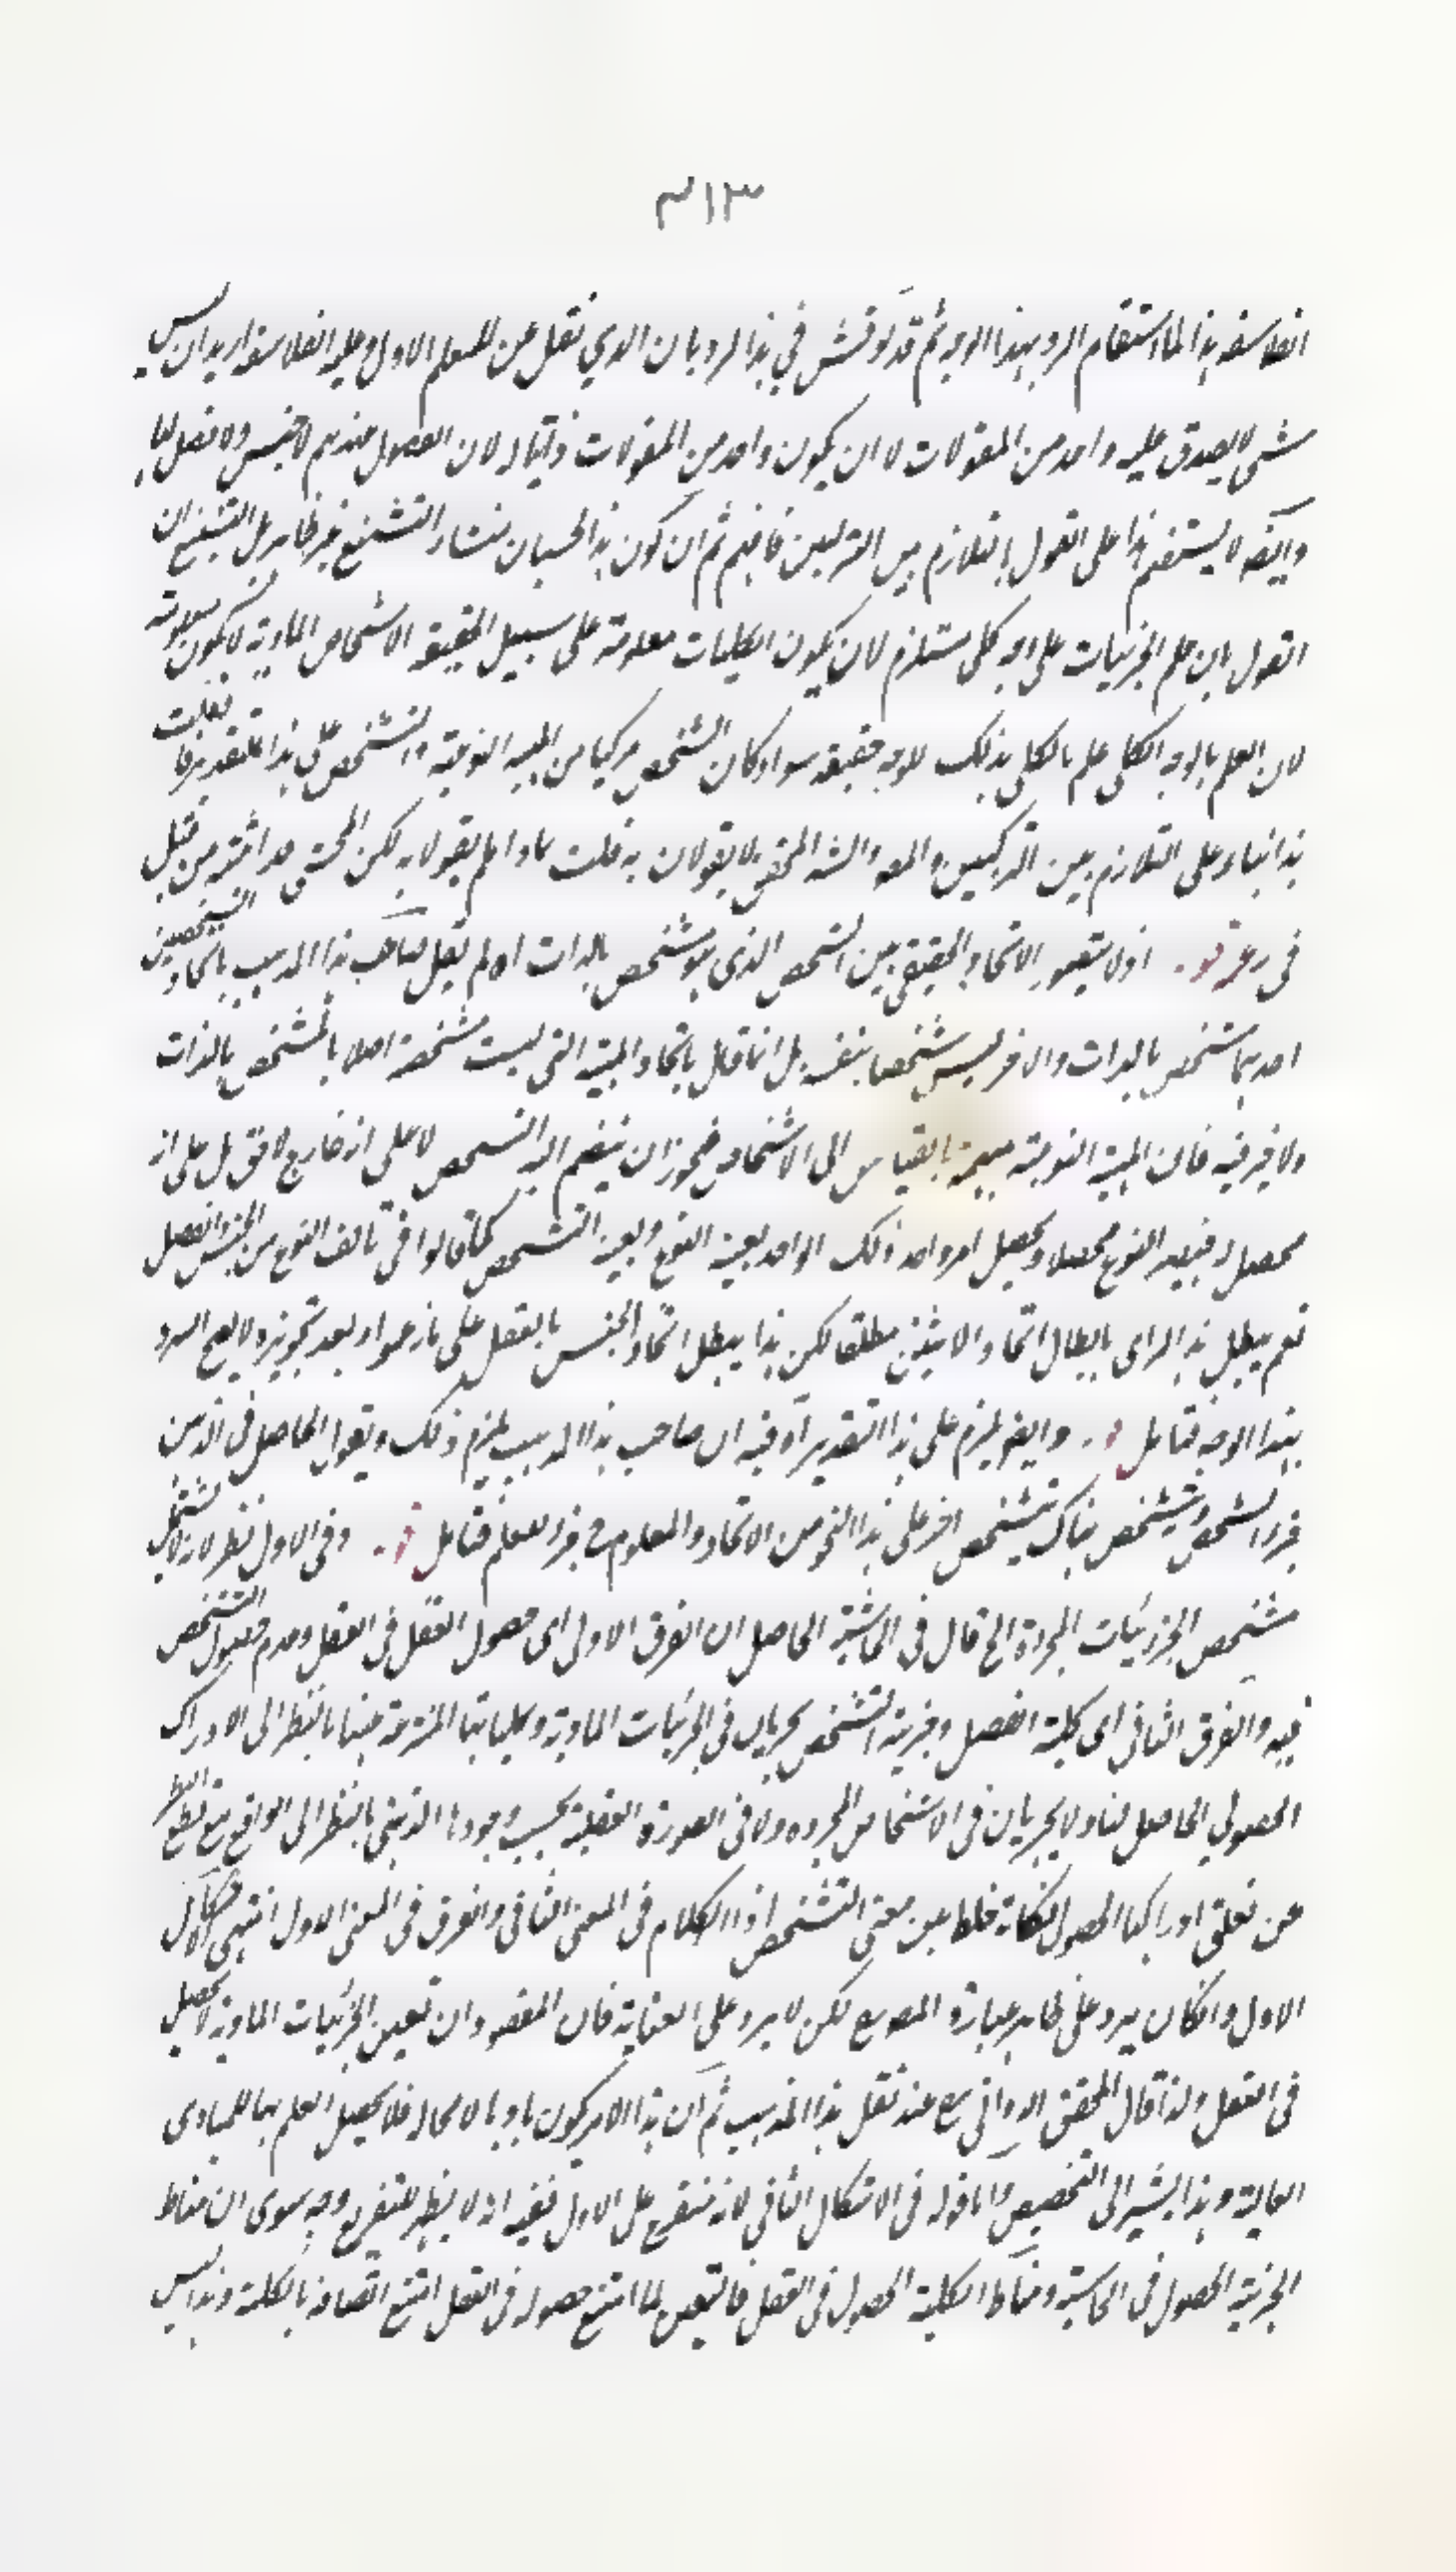 ٣١٣
الفلاسفة هذا لما استقام الرد بهذا الوجه ثم قد نوقش في هذا الرد بان الذي نقل عن المعلم الاول وعليه الفلاسفة اريد ان ليس
شئ لا يصدق عليه واحد من المقولات لا ان يكون واحد من المقولات ذاتيا له لان الفصول عندهم لا جنس ولا فصل لها
وايضا لا يستقيم هذا على القول بالتلازم بين التركيبين فافهم ثم ان كون هذا الحسبان منشاء التشنيع غير ظاهر بل التشنيع ان
القول بان علم الجزئيات على وجه كلي مستلزم لان يكون الكليات معلومة على سبيل الحقيقة الاشخاص المادية لا يكون معلومة
لان العلم بالوجه الكلي علم بالكلي بذلك الوجه حقيقة سواء كان الشخص مركبا من المهية النوعية والتشخص على هذا التقدير فان قلت
هذا بناء على التلازم بين التركيبين والمص والش المحقق لا يقولان به قلت هما وان لم يقولا به لكن المحشي قد اثبته من قبل
في زعمه قوله اذ لا يتصور الاتحاد الحقيقي بين الشخص الذي هو مشخص بالذات اه لم يقل صاحب هذا المذهب باتحاد الشخصين
احدهما متشخص بالذات والاخر ليس شخصا بنفسه بل انما قال باتحاد المهية التي ليست متشخصة اصلا بالمشخص بالذات
ولا خير فيه فان المهية النوعية مبهمة بالقياس الى الاشخاص فيجوز ان ينضم اليه التشخص لا على انه خارج لاحق بل على انه
محصل له فيصير النوع محصلا ويحصل امر واحد ذلك الواحد بعينه النوع وبعينه التشخص كما قالوا في تالف النوع من الجنس والفصل
نعم يبطل هذا الراي بابطال اتحاد الاثنين مطلقا لكن هذا يبطل اتحاد الجنس بالفصل على ما زعموا وبعد تجويزه لا يصح الرد
بهذا الوجه فتامل قوله وايضا يلزم على هذا التقدير اه فيه ان صاحب هذا المذهب يلتزم ذلك ويقول الحاصل في الذهن
جزء الشخص ويتشخص هناك بتشخص اخر على هذا النحو من الاتحاد والمعلوم جزء للعلم فتامل قوله وفي الاول نظر لانه لا يشتمل
مشخص الجزئيات المجردة الخ قال في الحاشية الحاصل ان الفرق الاول اي حصول الفصل في العقل وعدم حصول التشخص
فيه والفرق الثاني اي كلية الفصل وجزئية التشخص يجريان في الجزئيات المادية وكلياتها المنتزعة عنها بالنظر الى الادراك
الحصولي الحاصل لنا ولا يجريان في الاشخاص المجردة ولا في الصورة العقلية بحسب وجودها الذهني بالنظر الى الواقع مع قطع النظر
عن تعلق ادراكنا الحصولي فكانه خلط بين معنى التشخص اذ الكلام في المعنى الثاني والفرق في المعنى الاول انتهى الاشكال
الاول وان كان يرد على ظاهر عبارة المص لكن لا يرد على العناية فان المقصود ان تعين الجزئيات المادية لا يحصل
في العقل ولذا قال المحقق الدواني عند نقل هذا المذهب ثم ان هذا الامر يكون ماديا لا محالة فلا يحصل العلم بها للمبادى
العالية وهذا يشير الى التخصيص واما قوله في الاشكال الثاني لانه متفرع على الاول ففيه انه لا يظهر للتفريع وجه سوى ان مناط
الجزئية الحصول في الحاسة ومناط الكلية الحصول في العقل فالتعين لما امتنع حصوله في العقل امتنع اتصافه بالكلية وهذا ليس